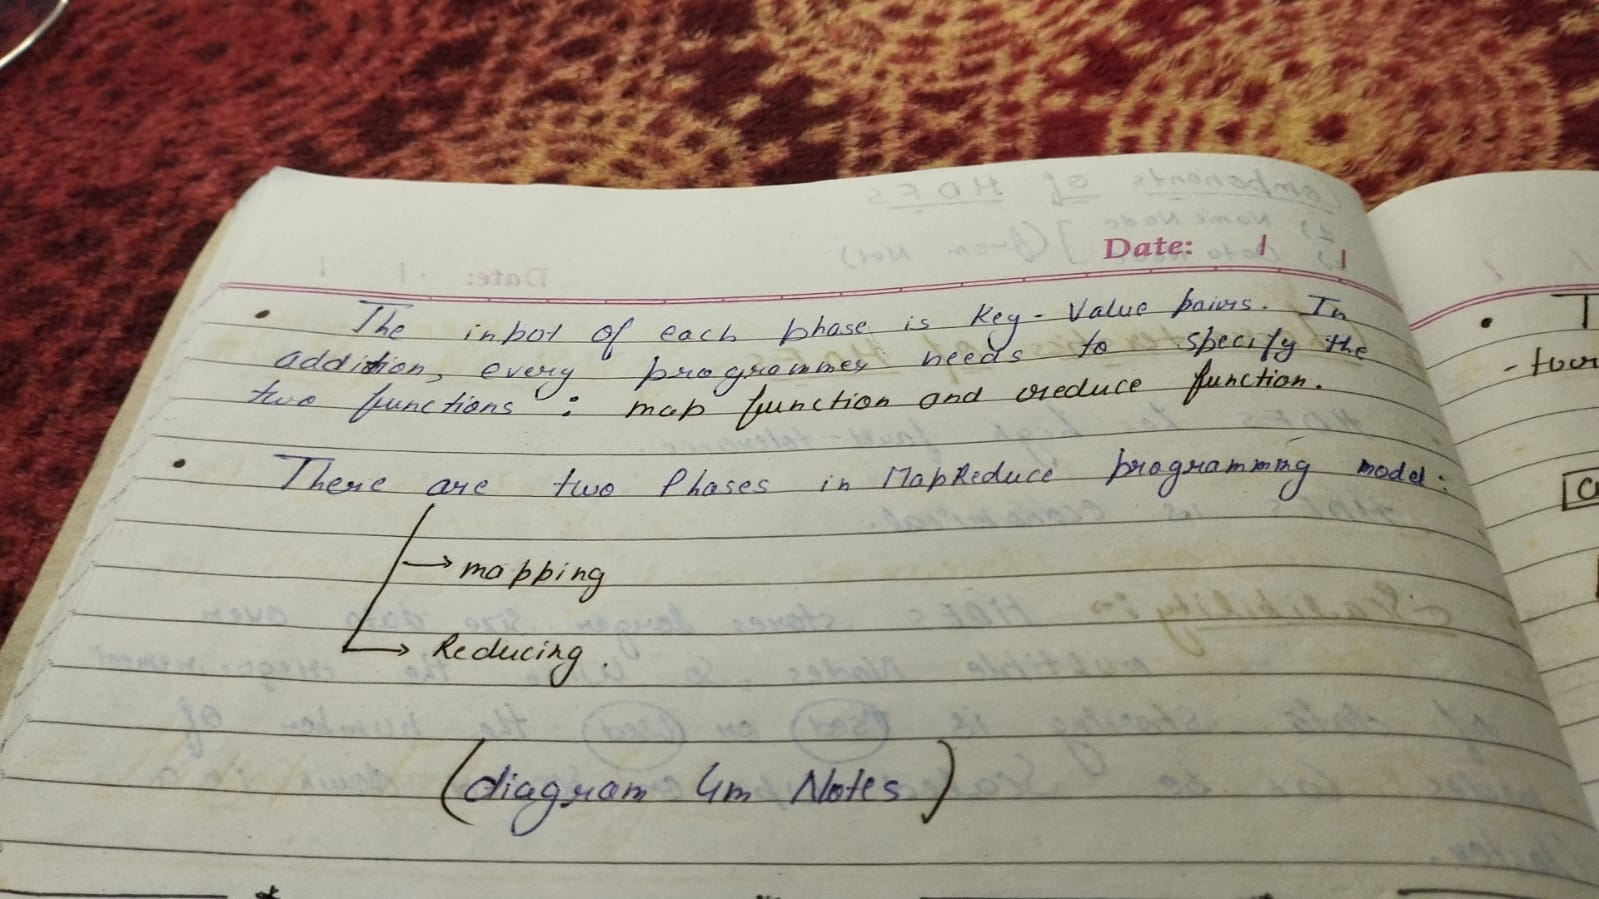 Date: / /
• The inpot of each phase is Key-Value pairs. In
addition, every programmer needs to specify the
two functions : map function and reduce function.
• There are two Phases in MapReduce programming model:
→ mapping
→ Reducing.
(diagram 4m Notes)